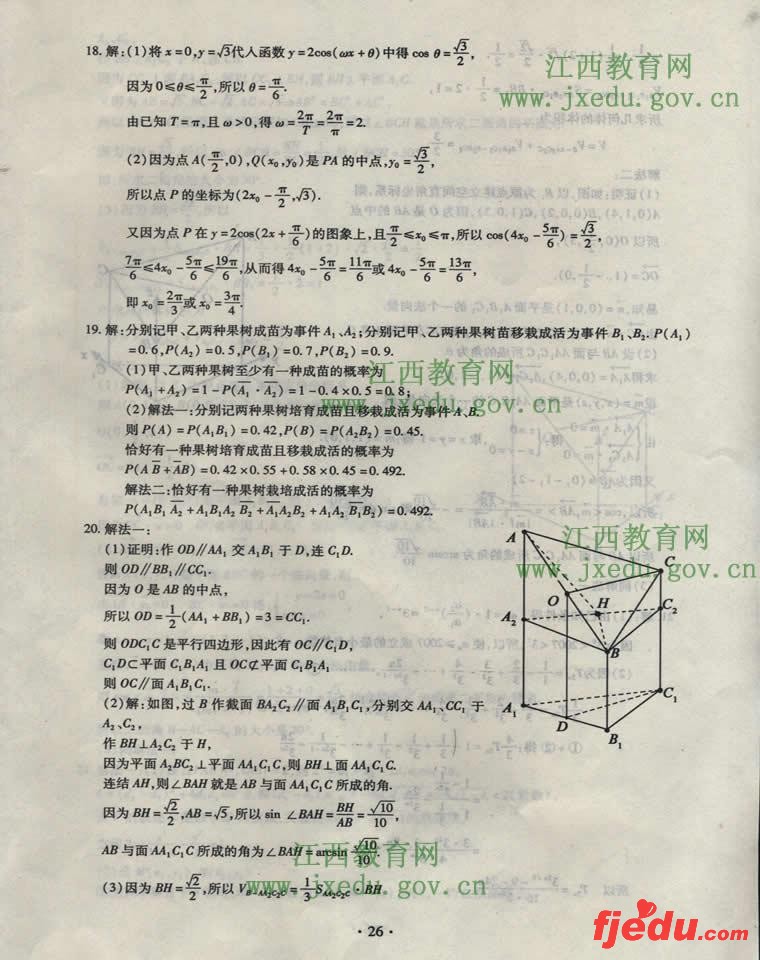 18. 解:(1)将 x=0,y=√3代人函数 y=2cos(ωx+θ)中得 cos θ=√3/2,
因为 0≤θ≤π/2,所以 θ=π/6.
由已知 T=π,且 ω>0,得 ω=2π/T=2π/π=2.
(2)因为点 A(π/2,0),Q(x₀,y₀)是 PA 的中点,y₀=√3/2,
所以点 P 的坐标为(2x₀-π/2,√3).
又因为点 P 在 y=2cos(2x+π/6)的图象上,且π/2≤x₀≤π,所以 cos(4x₀-5π/6)=√3/2,
7π/6≤4x₀-5π/6≤19π/6,从而得 4x₀-5π/6=11π/6或 4x₀-5π/6=13π/6,
即 x₀=2π/3或 x₀=3π/4.
19. 解:分别记甲、乙两种果树成苗为事件 A₁、A₂;分别记甲、乙两种果树苗移栽成活为事件 B₁、B₂. P(A₁)
=0.6,P(A₂)=0.5,P(B₁)=0.7,P(B₂)=0.9.
(1)甲、乙两种果树至少有一种成苗的概率为
P(A₁+A₂)=1-P(A̅₁·A̅₂)=1-0.4×0.5=0.8;
(2)解法一:分别记两种果树培育成苗且移栽成活为事件 A、B.
则 P(A)=P(A₁B₁)=0.42,P(B)=P(A₂B₂)=0.45.
恰好有一种果树培育成苗且移栽成活的概率为
P(A B̅+A̅B)=0.42×0.55+0.58×0.45=0.492.
解法二:恰好有一种果树栽培成活的概率为
P(A₁B₁ A̅₂+A₁B₁A₂ B̅₂+A̅₁A₂B₂+A₁A₂ B̅₁B₂)=0.492.
20. 解法一:
(1)证明:作 OD∥AA₁ 交 A₁B₁ 于 D,连 C₁D.
则 OD∥BB₁∥CC₁.
因为 O 是 AB 的中点,
所以 OD=1/2(AA₁+BB₁)=3=CC₁.
则 ODC₁C 是平行四边形,因此有 OC∥C₁D,
C₁D⊂平面 C₁B₁A₁ 且 OC⊄平面 C₁B₁A₁
则 OC∥面 A₁B₁C₁.
(2)解:如图,过 B 作截面 BA₂C₂∥面 A₁B₁C₁,分别交 AA₁、CC₁ 于
A₂、C₂,
作 BH⊥A₂C₂ 于 H,
因为平面 A₂BC₂⊥平面 AA₁C₁C,则 BH⊥面 AA₁C₁C.
连结 AH,则∠BAH 就是 AB 与面 AA₁C₁C 所成的角.
因为 BH=√2/2,AB=√5,所以 sin ∠BAH=BH/AB=√10/10,
AB 与面 AA₁C₁C 所成的角为∠BAH=arcsin √10/10.
(3)因为 BH=√2/2,所以 V_{B-AA₂C₂C}=1/3 S_{AA₂C₂C}·BH
A
C
O
H
A₂
C₂
B
A₁
C₁
D
B₁
· 26 ·
江西教育网
www.jxedu.gov.cn
江西教育网
www.jxedu.gov.cn
江西教育网
www.jxedu.gov.cn
江西教育网
www.jxedu.gov.cn
fjedu.com